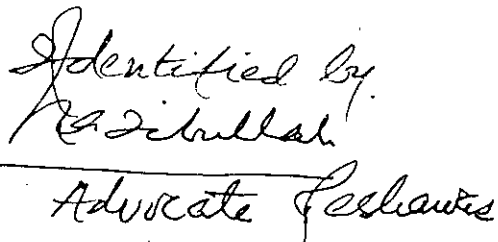 Identified by
Nazibullah
Advocate Peshawar